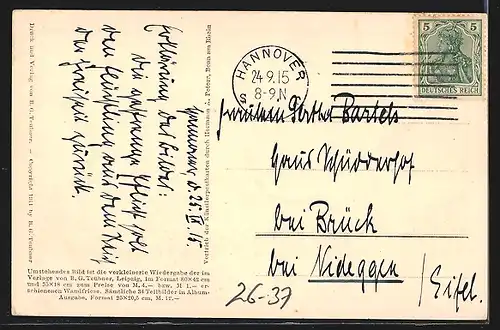 Druck und Verlag von B. G. Teubner. — Copyright 1911 by B. G. Teubner
Hannover d. 25. IX. 15.
Erklärung des Bildes:
den Häuptling aus dem
zurück.
Vertrieb der Künstlerpostkarten durch Hermann A. Peters, Bonn am Rhein
Umstehendes Bild ist die verkleinerte Wiedergabe der im
Verlage von B. G. Teubner, Leipzig, im Format 80×42 cm
und 35×18 cm zum Preise von M. 4.— bzw. M 1.— er-
schienenen Wandfriese. Sämtliche 36 Teilbilder in Album-
Ausgabe, Format 25×20,5 cm, M. 15.—
HANNOVER
24 9.15
8-9.N
S
5 5
DEUTSCHES REICH
Fräulein Bertha Bartels
Haus Schüdderhof
bei Brück
bei Nideggen
/ Eifel.
26-37